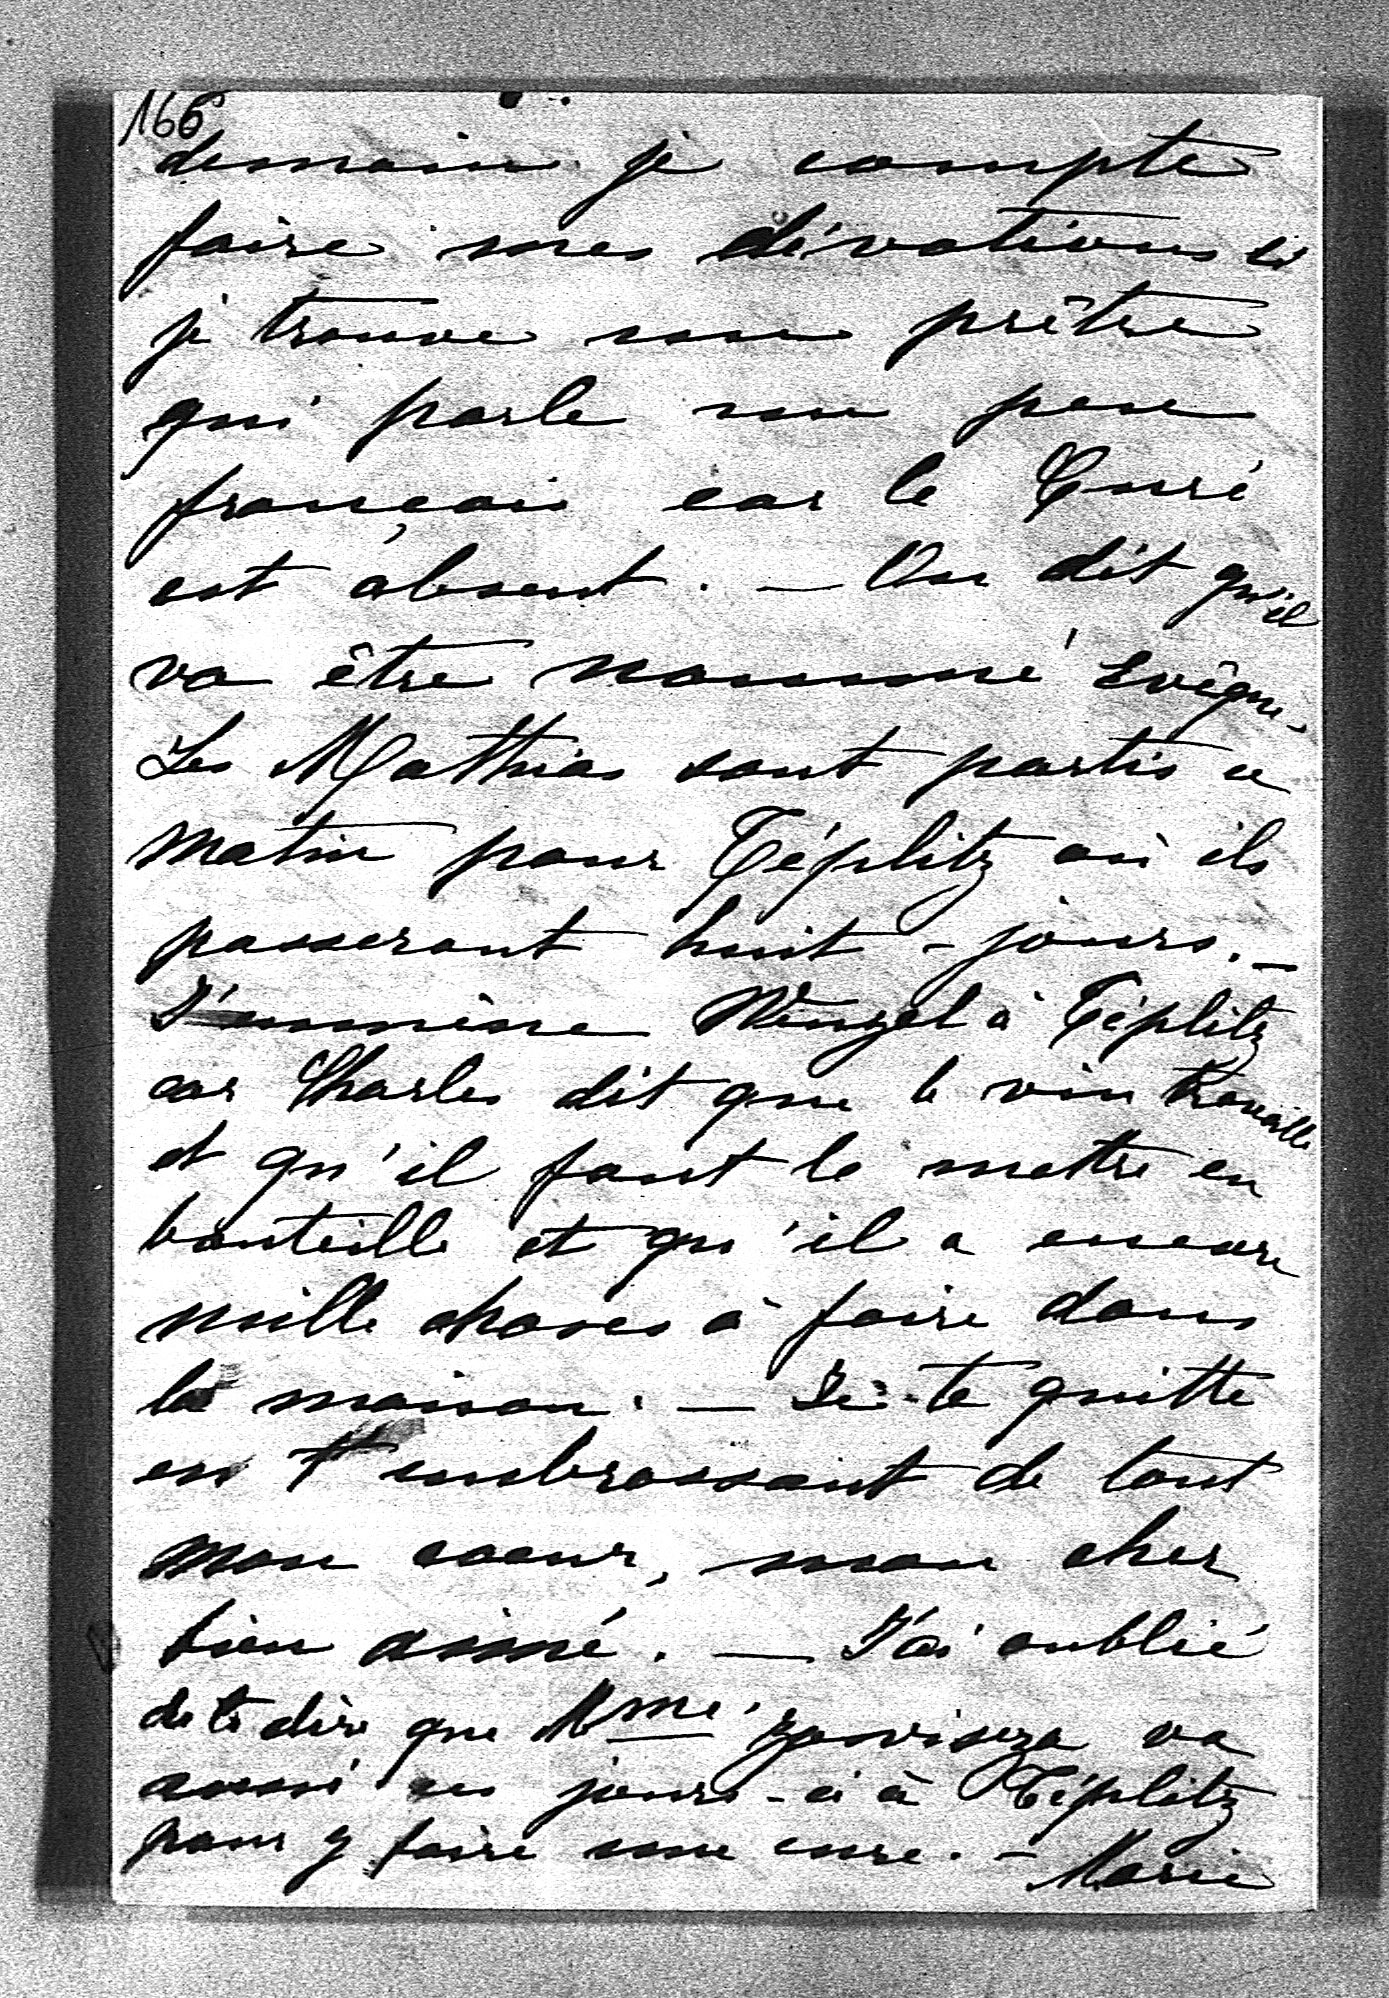 166
demain je compte
faire mes dévotions si
je trouve un prêtre
qui parle un peu
français car le Curé
est absent. — On dit qu'il
va être nommé Evêque.
Les Mathias sont partis ce
matin pour Téplitz où ils
passeront huit-jours. —
J'emmène Wenzel à Téplitz
car Charles dit que le vin travaille
et qu'il faut le mettre en
bouteille et qu'il a encore
mille choses à faire dans
la maison. — Je te quitte
en t'embrassant de tout
mon coeur, mon cher
bien aimé. — J'ai oublié
de te dire que Mme va
aussi ces jours-ci à Téplitz
pour y faire une cure. —
Marie